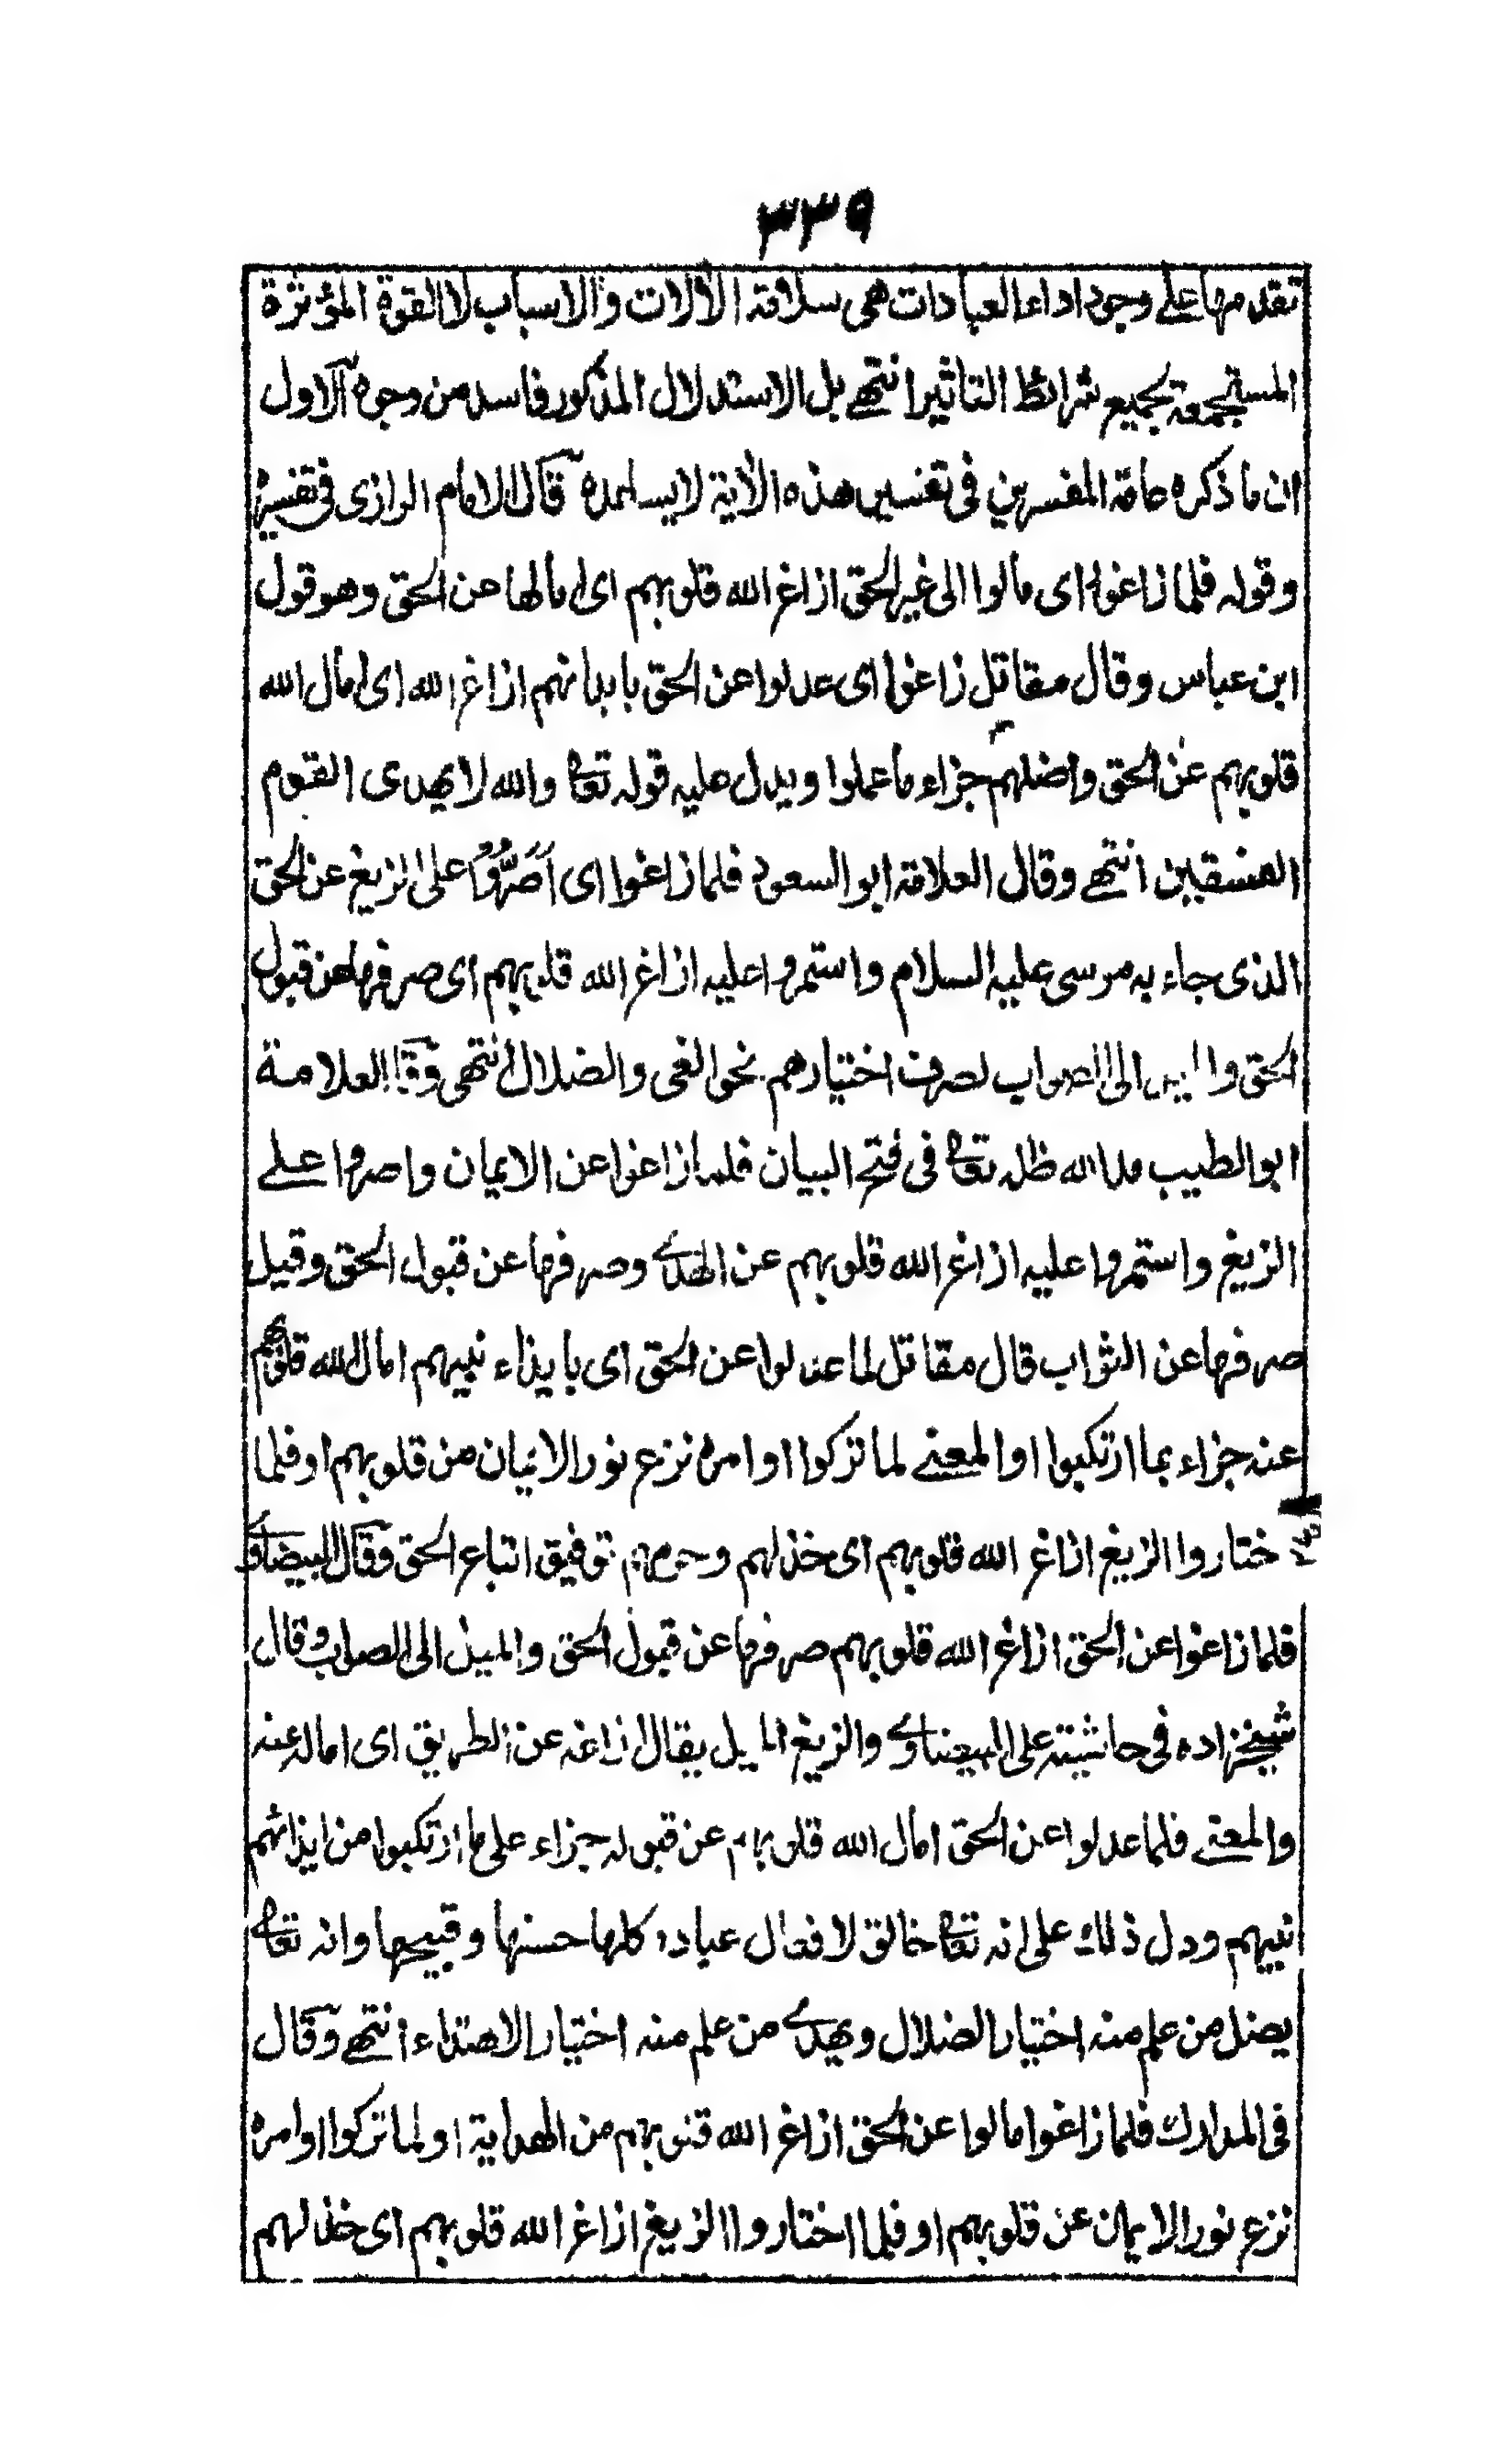 ٣٣٩
تقدمها على وجود اداء العبادات هى سلامة الألات والاسباب لا القوة المؤثرة
المستجمعة بجميع شرائط التاثير انتهى بل الاستدلال المذكور فاسد من وجوه الاول
ان ما ذكره عامة المفسرين فى تفسير هذه الأية لا يساعده قال الامام الرازى فى تفسيره
وقوله فلما زاغوا اى مالوا الى غير الحق ازاغ الله قلوبهم اى امالها عن الحق وهو قول
ابن عباس وقال مقاتل زاغوا اى عدلوا عن الحق بابدانهم ازاغ الله اى امال الله
قلوبهم عن الحق واضلهم جزاء ما عملوا ويدل عليه قوله تعا والله لا يهدى القوم
الفسقين انتهى وقال العلامة ابو السعود فلما زاغوا اى اَصَرُّوْا على الزيغ عن الحق
الذى جاء به موسى عليه السلام واستمروا عليه ازاغ الله قلوبهم اى صرفها عن قبول
الحق والميل الى الصواب لصرف اختيارهم نحو الغى والضلال انتهى وقال العلامة
ابو الطيب مد الله ظله تعا فى فتح البيان فلما زاغوا عن الايمان واصروا على
الزيغ واستمروا عليه ازاغ الله قلوبهم عن الهدى وصرفها عن قبول الحق وقيل
صرفها عن الثواب قال مقاتل لما عدلوا عن الحق اى بايذاء نبيهم امال الله قلوبهم
عنه جزاء بما ارتكبوا او المعنى لما تركوا اوامره نزع نور الايمان من قلوبهم او فلما
ختاروا الزيغ ازاغ الله قلوبهم اى خذلهم وحرمهم توفيق اتباع الحق وقال البيضاوى
فلما زاغوا عن الحق ازاغ الله قلوبهم صرفها عن قبول الحق والميل الى الصواب وقال
شيخزاده فى حاشيته على البيضاوى والزيغ الميل يقال ازاغه عن الطريق اى اماله عنه
والمعنى فلما عدلوا عن الحق امال الله قلوبهم عن قبوله جزاء على ما ارتكبوا من ايذائهم
نبيهم ودل ذلك على انه تعا خالق لافعال عباده كلها حسنها وقبيحها وانه تعا
يضل من علم منه اختيار الضلال ويهدى من علم منه اختيار الاهتداء انتهى وقال
فى المدارك فلما زاغوا مالوا عن الحق ازاغ الله قلوبهم من الهداية او لما تركوا اوامره
نزع نور الايمان عن قلوبهم او فلما اختاروا الزيغ ازاغ الله قلوبهم اى خذلهم